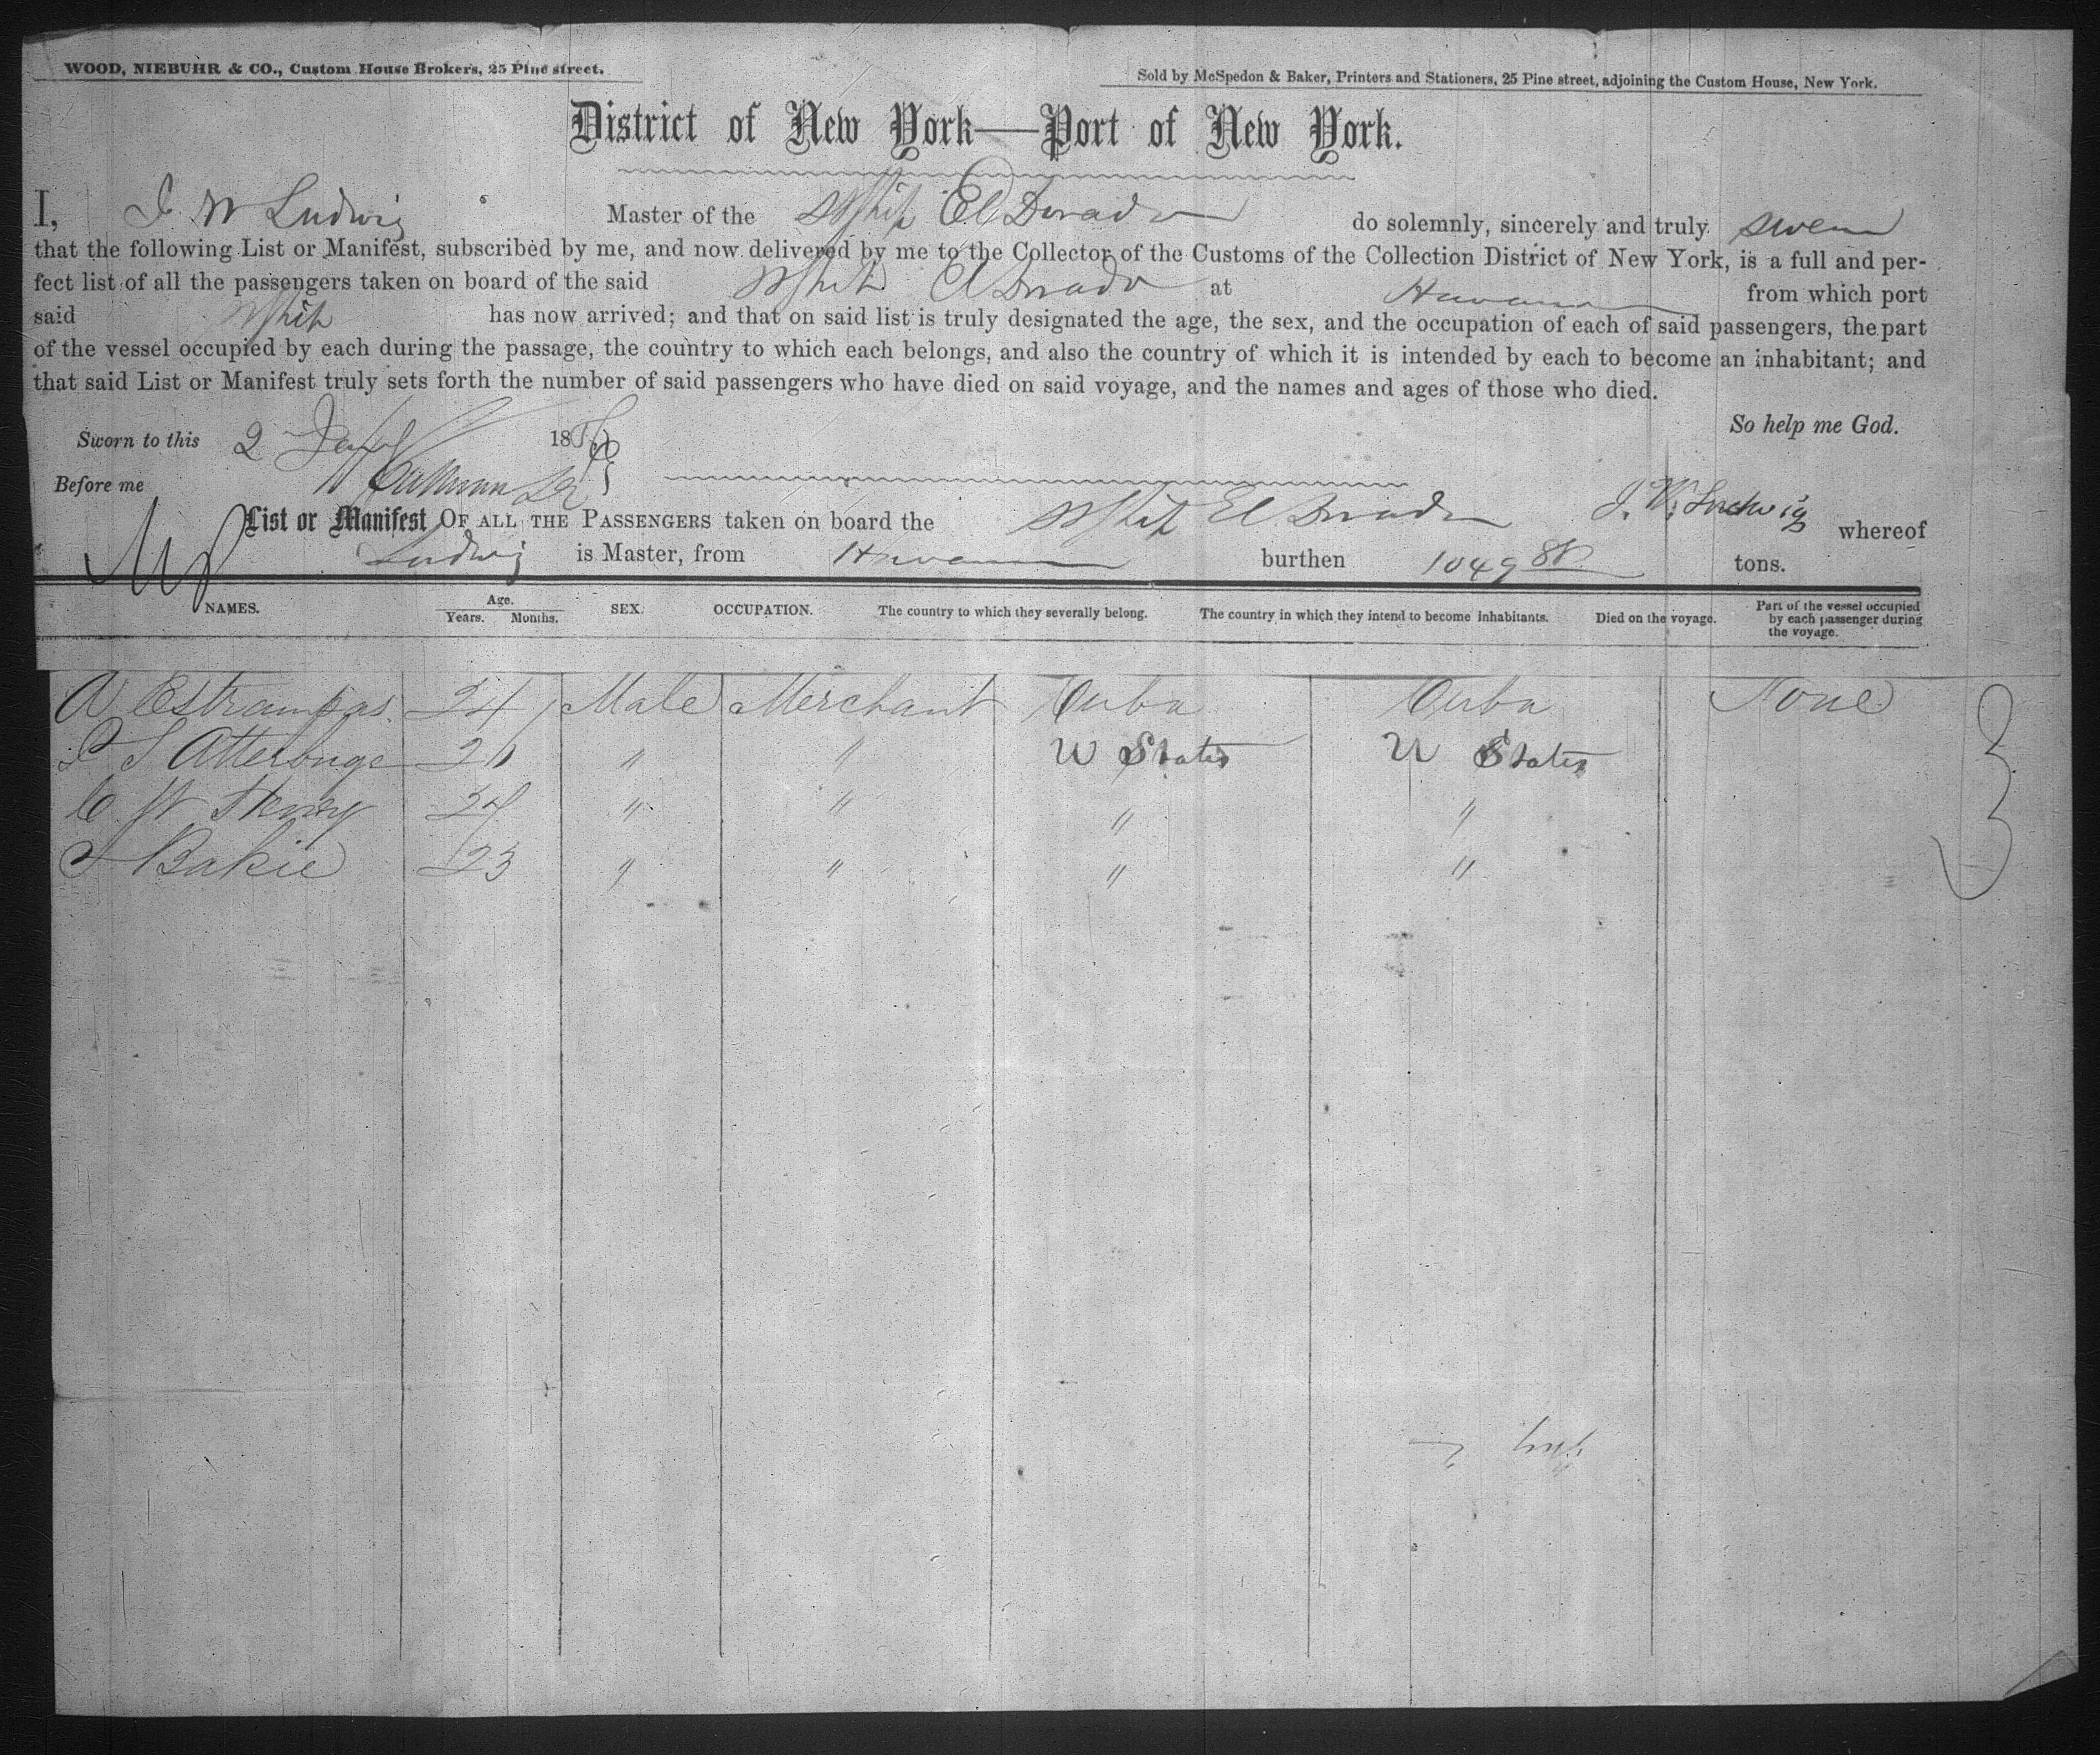 WOOD, NIEBUHR & CO., Custom House Brokers, 25 Pine street.
Sold by McSpedon & Baker, Printers and Stationers, 25 Pine street, adjoining the Custom House, New York.
District of New York—Port of New York.
I, J. W Ludwig Master of the SShip El Dorado do solemnly, sincerely and truly swear
that the following List or Manifest, subscribed by me, and now delivered by me to the Collector of the Customs of the Collection District of New York, is a full and per-
fect list of all the passengers taken on board of the said SShip El Dorado at Havana from which port
said SShip has now arrived; and that on said list is truly designated the age, the sex, and the occupation of each of said passengers, the part
of the vessel occupied by each during the passage, the country to which each belongs, and also the country of which it is intended by each to become an inhabitant; and
that said List or Manifest truly sets forth the number of said passengers who have died on said voyage, and the names and ages of those who died.
So help me God.
Sworn to this 2 18
Before me
List or Manifest OF ALL THE PASSENGERS taken on board the SShip El Dorado J. W. Ludwig whereof
Ludwig is Master, from Havana burthen 1049 tons.
NAMES. Age. Years. Months. SEX. OCCUPATION. The country to which they severally belong. The country in which they intend to become inhabitants. Died on the voyage. Part of the vessel occupied by each passenger during the voyage.
A Estrampas. 24 Male Merchant Cuba Cuba None
S Atterbuge 26 " " U States U States
C. W Henry 24 " " " "
Bakie 23 " " " "